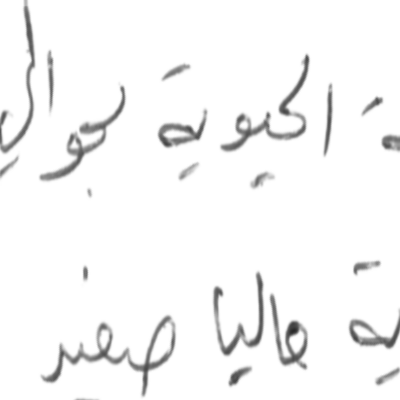 ة الحيوية بحوالي
ية حاليا صغير